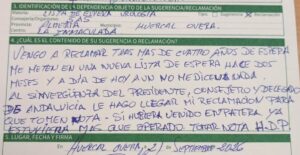 3. IDENTIFICACIÓN DE LA DEPENDENCIA OBJETO DE LA SUGERENCIA/RECLAMACIÓN
LISTA DE ESPERA UROLOGIA
Consejería/Organismo
SAS
Provincia
ALMERIA
HUERCAL OVERA.
LA INMACULADA
4. ¿CUÁL ES EL CONTENIDO DE SU SUGERENCIA O RECLAMACIÓN?
VENGO A RECLAMAR TRAS MAS DE CUATRO AÑOS DE ESPERA
ME METEN EN UNA NUEVA LISTA DE ESPERA HACE DOS
MESES Y A DIA DE HOY AUN NO ME DICEN NADA.
AL SINVERGÜENZA DEL PRESIDENTE, CONSEJERO Y DELEGADO
DE ANDALUCIA LE HAGO LLEGAR MI RECLAMACION PARA
QUE TOMEN NOTA - SI HUBIERA VENIDO EN PATERA YA
ESTUVIERA MAS QUE OPERADO TOTAL NOTA H.D.P
5. LUGAR, FECHA Y FIRMA
En HUERCAL OVERA, 21 SEPTIEMBRE